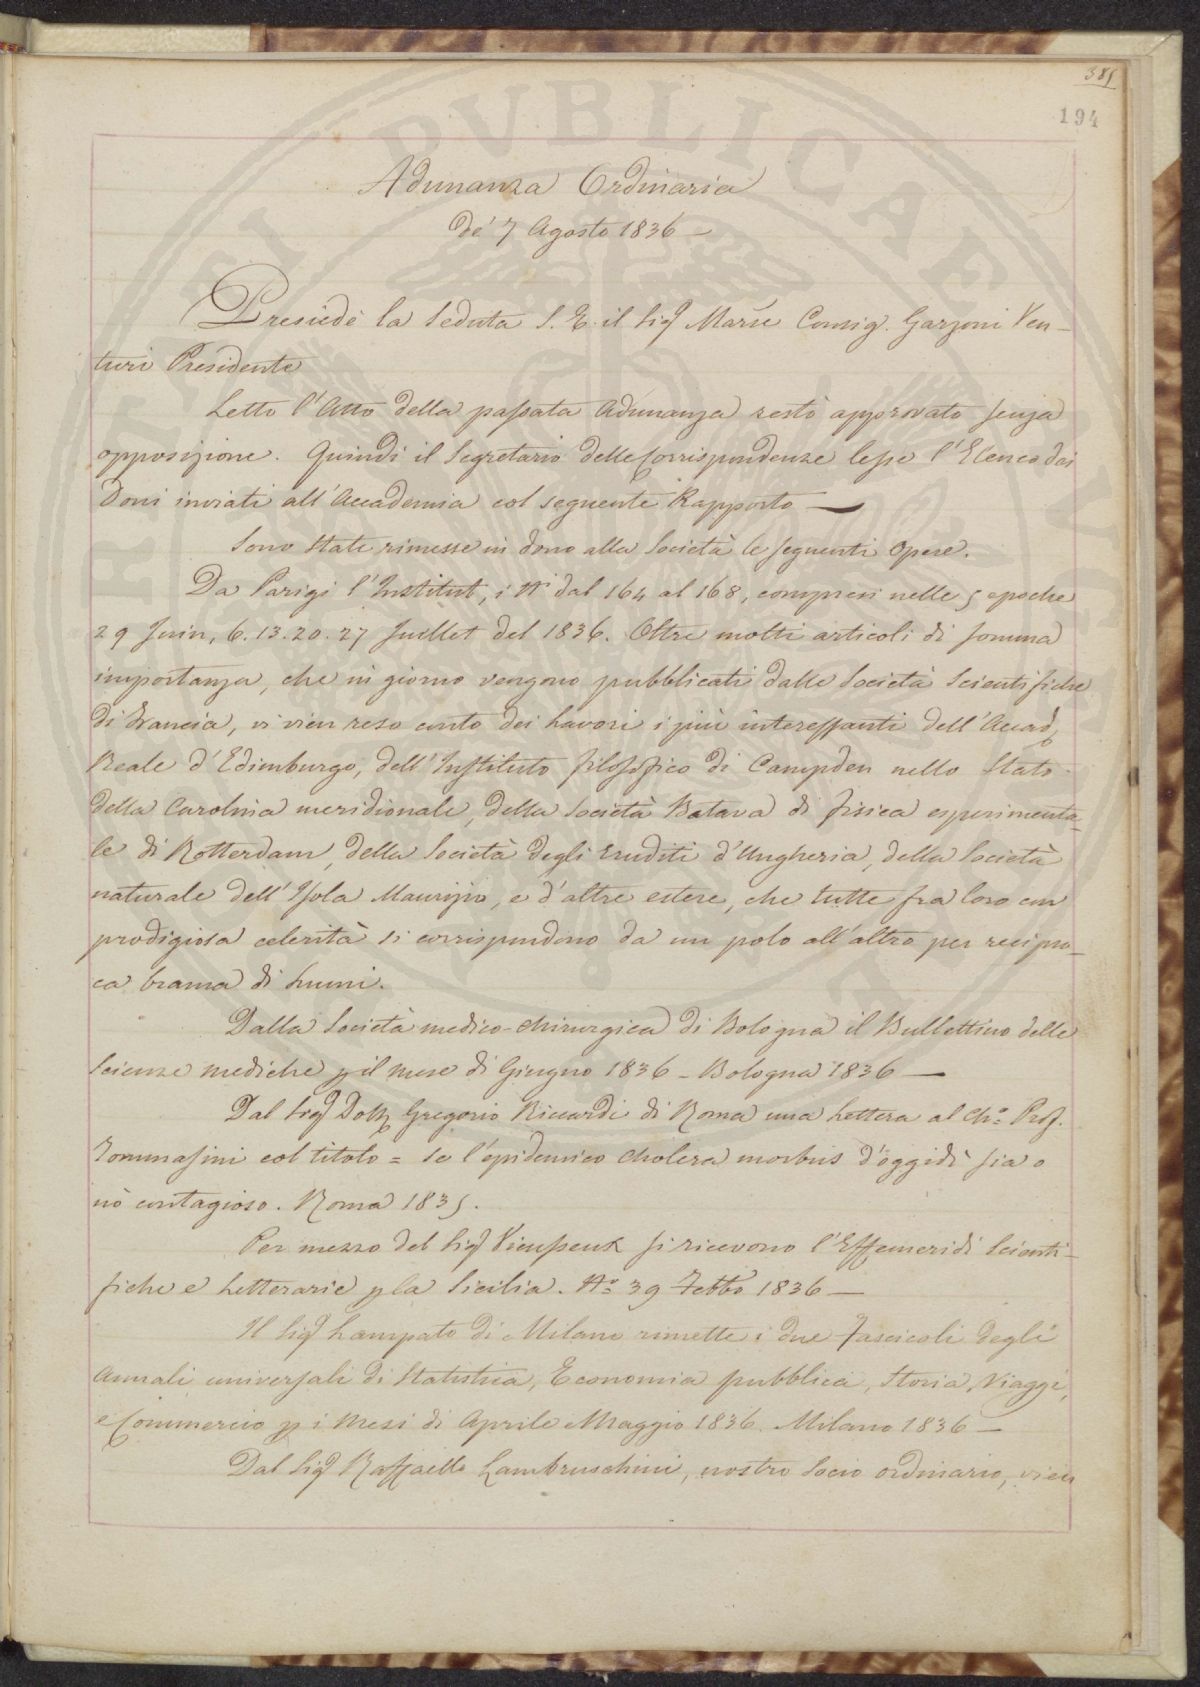 385
194
Adunanza Ordinaria
de' 7 Agosto 1836 —
Presiedè la Seduta S. E. il Sig.r Marse Consig. Garzoni Ven-
turi Presidente
Letto l'Atto della passata Adunanza restò approvato senza
opposizione. Quindi il Segretario delle Corrispondenze lesse l'Elenco dei
Doni inviati all'Accademia col seguente Rapporto —
Sono state rimesse in dono alla Società le seguenti Opere.
Da Parigi l'Institut, i Ni dal 164 al 168, compresi nelle 5 epoche
29 Juin, 6. 13. 20. 27 Juillet del 1836. Oltre molti articoli di somma
importanza, che in giorno vengono pubblicati dalle Società Scientifiche
di Francia, vi vien reso conto dei Lavori i più interessanti dell'Accad.
Reale d'Edimburgo, dell'Instituto filosofico di Campden nello Stato
della Carolina meridionale, della Società Batava di fisica esperimenta-
le di Rotterdam, della Società degli Eruditi d'Ungheria, della Società
naturale dell'Isola Maurizio, e d'altre estere, che tutte fra loro con
prodigiosa celerità si corrispondono da un polo all'altro per recipro-
ca brama di Lumi.
Dalla Società medico-chirurgica di Bologna il Bullettino delle
Scienze mediche p il mese di Giugno 1836 – Bologna 1836 —
Dal Sig.r Dott. Gregorio Riccardi di Roma una Lettera al Ch.o Prof.
Tommasini col titolo = Se l'epidemico cholera morbus d'oggidì sia o
nò contagioso. Roma 1835.
Per mezzo del Sig.r Vieusseux si ricevono l'Effemeridi Scienti-
fiche e Letterarie p la Sicilia. No 39 Febbo 1836 —
Il Sig.r Lampato di Milano rimette i due Fascicoli degli
Annali universali di Statistica, Economia pubblica, Storia, Viaggi,
e Commercio p i Mesi di Aprile e Maggio 1836. Milano 1836 —
Dal Sig.r Raffaello Lambruschini, nostro Socio ordinario, vien